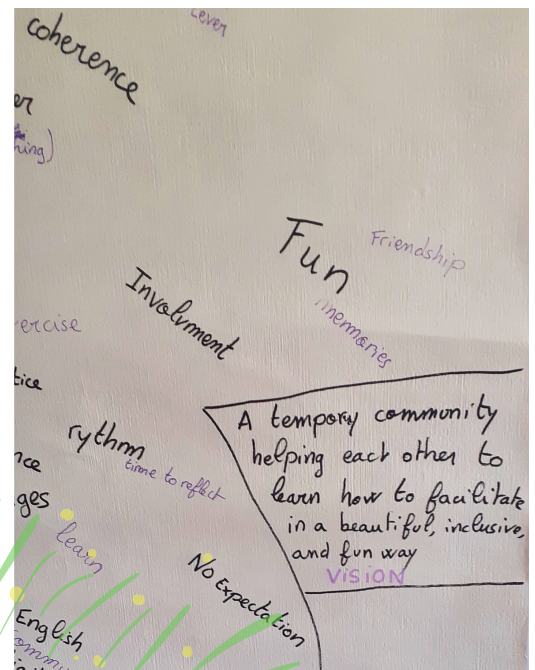 Lever
coherence
er
hing)
Fun
Friendship
memories
Involvment
ercise
tice
rythm
time to reflect
nce
ges
learn
No Expectation
English
A tempory community
helping each other to
learn how to facilitate
in a beautiful, inclusive,
and fun way
VISION